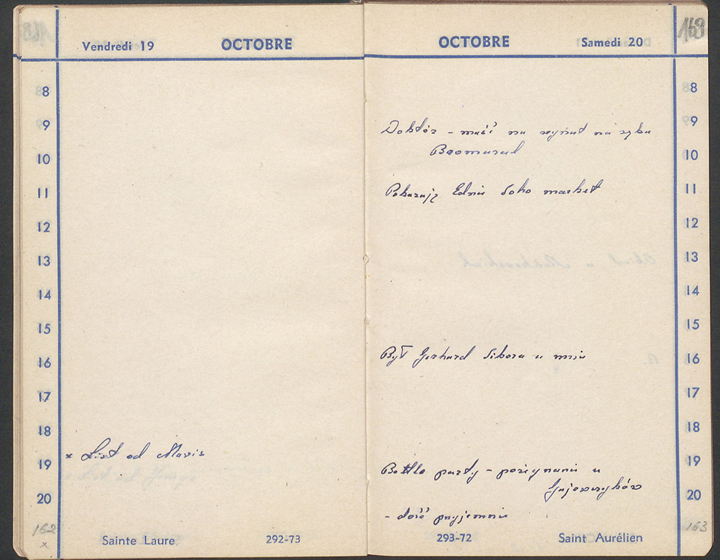 Vendredi 19 OCTOBRE
8
9
10
11
12
13
14
15
16
17
18
19
20
x List od Marii
162
x
Sainte Laure 292-73
OCTOBRE Samedi 20
163
8
9
10
11
12
13
14
15
16
17
18
19
20
Doktór - maść na na ręku
Pokazuję Edzia Soho market
Był Gerhard Sikora u mnie
Bottle party - pożegnanie u
Gajewskich
- dość przyjemnie
163
293-72 Saint Aurélien